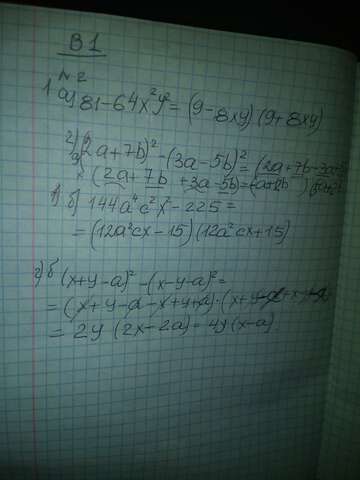 В1
№2
1) а) 81-64x²y²=(9-8xy)(9+8xy)
2) а) (2a+7b)²-(3a-5b)²=(2a+7b-3a+5
× (2a+7b+3a-5b)=(-a+12b)(5a+2b
1) б) 144a⁴c²x²-225=
=(12a²cx-15)(12a²cx+15)
2) б (x+y-a)²-(x-y-a)²=
=(x+y-a-x+y+a)·(x+y-a+x-y-a)
=2y(2x-2a)=4y(x-a)